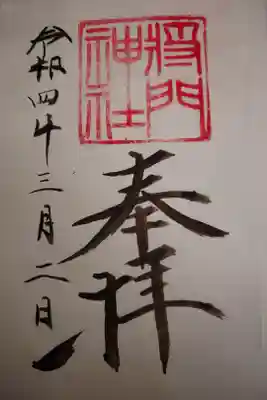 将門
神社
奉拝
令和四年三月二日